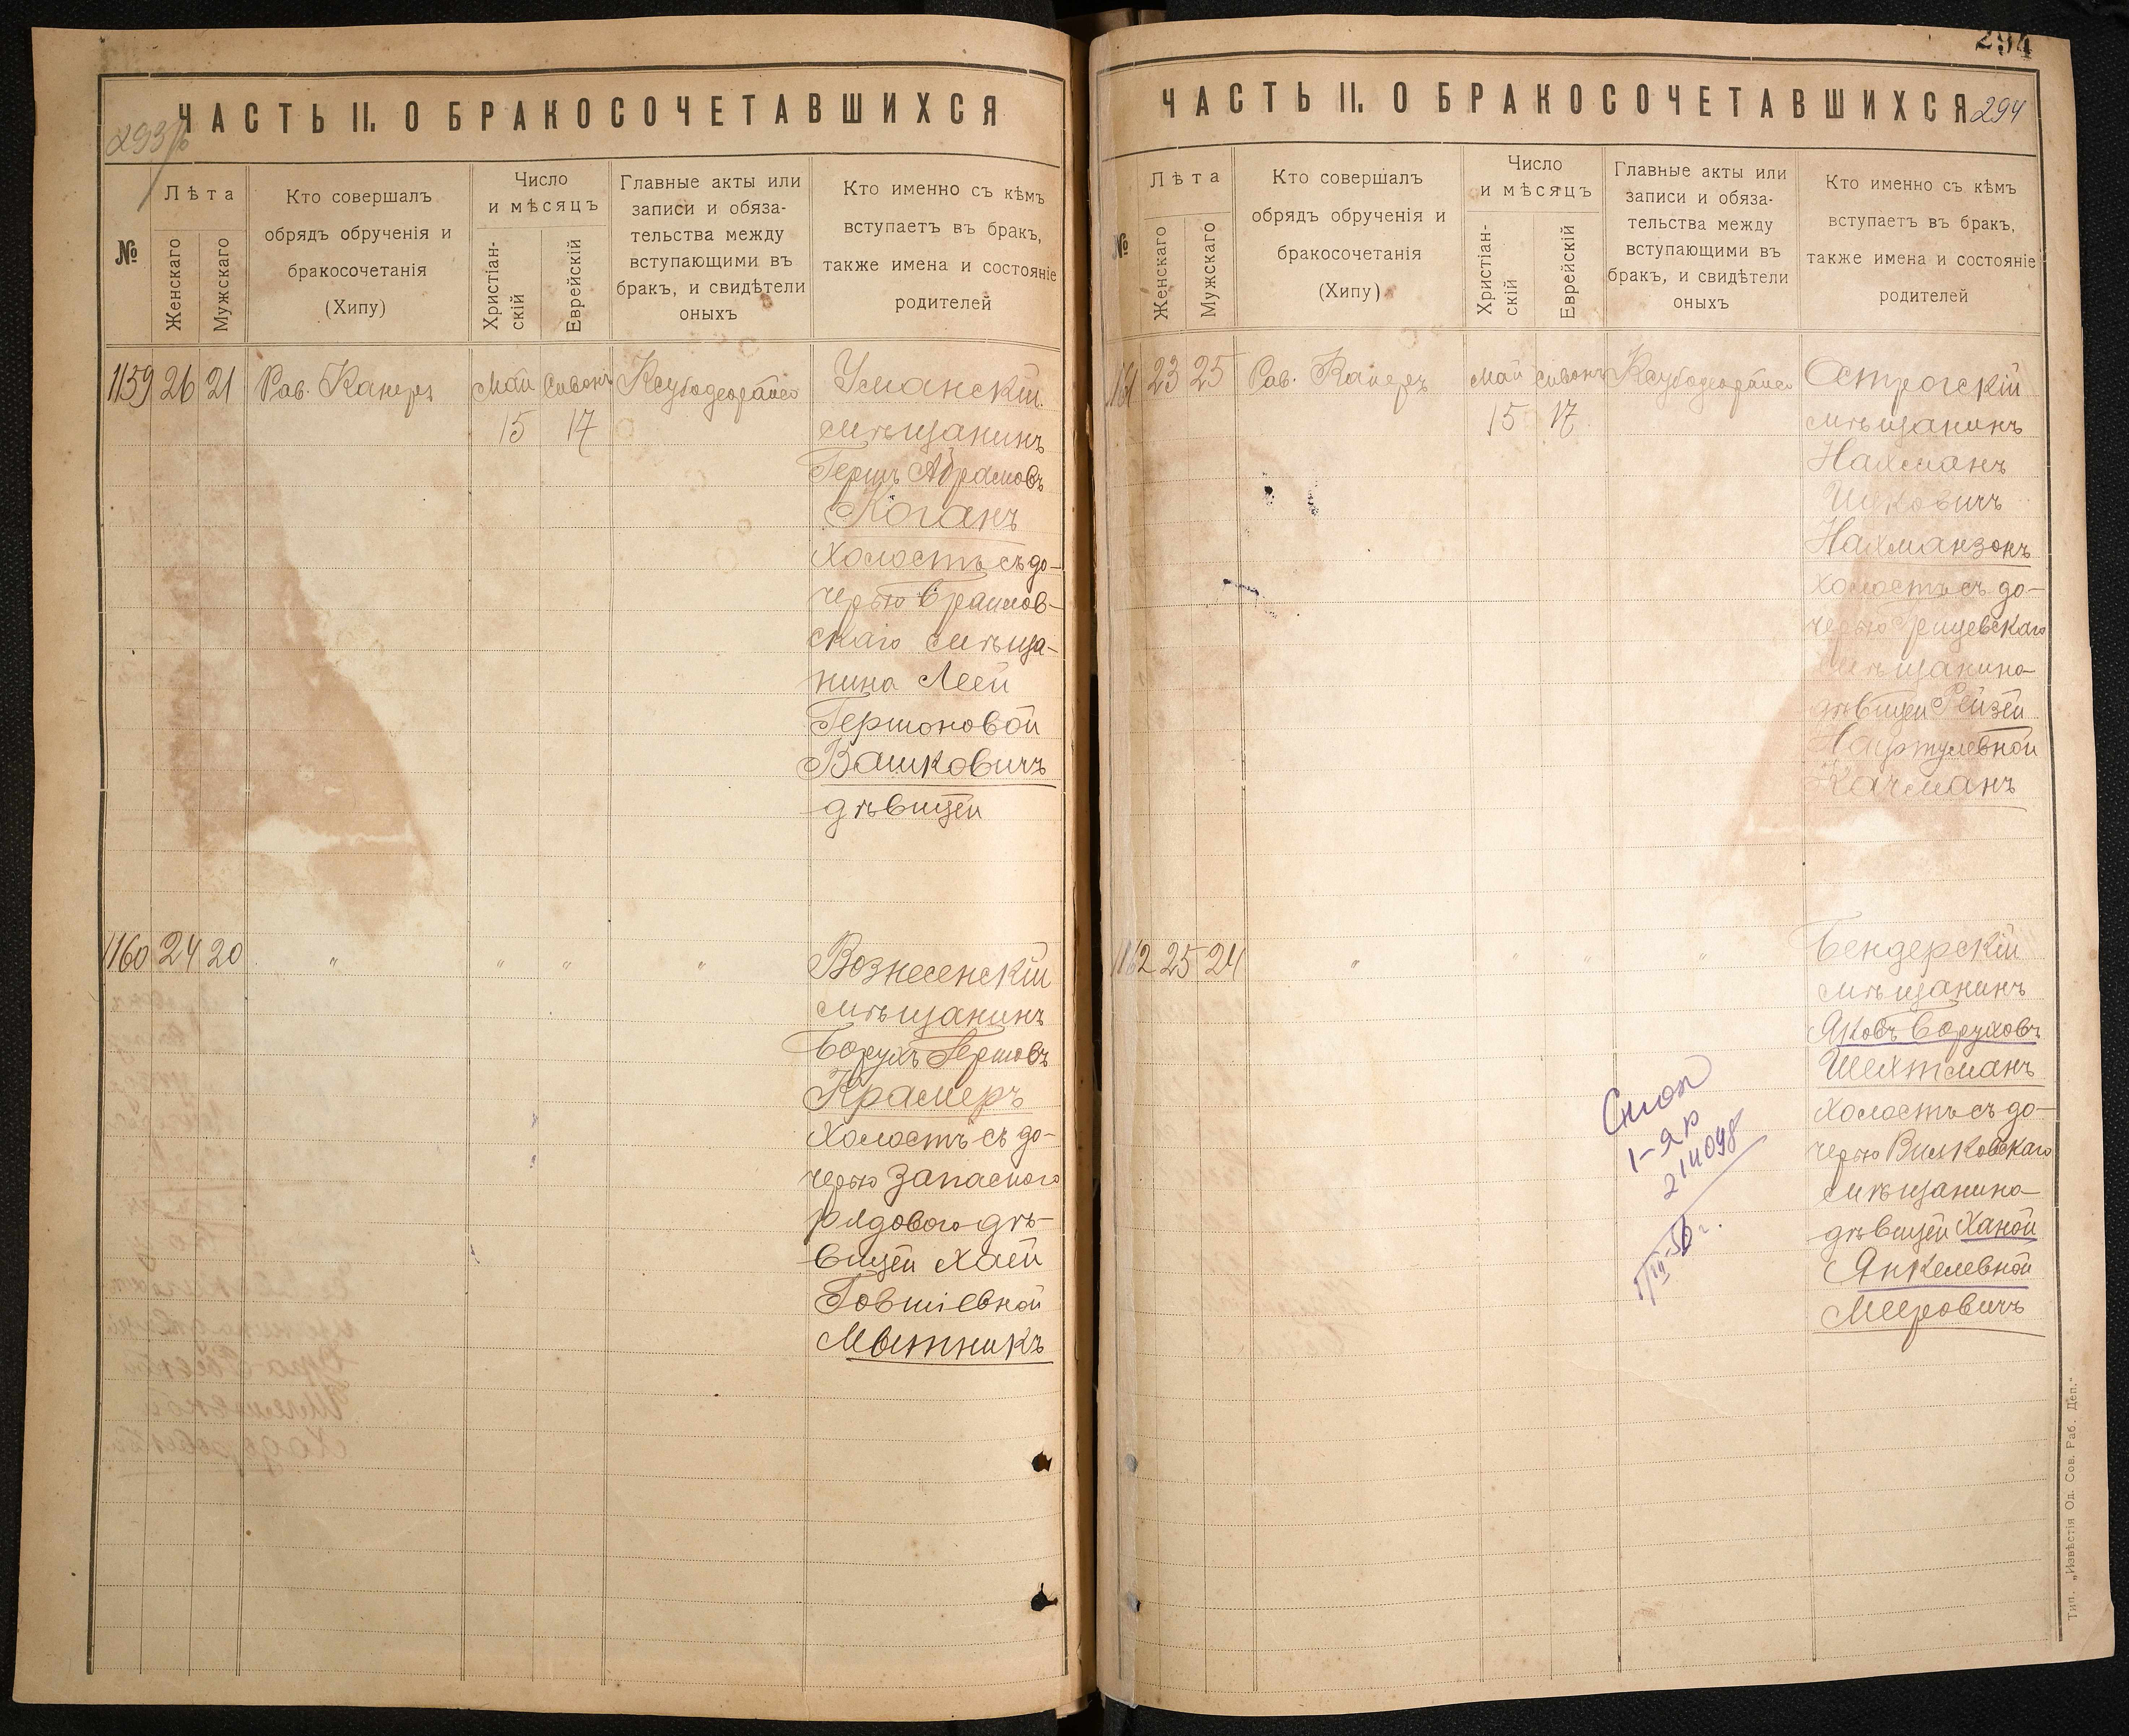 293 б
ЧАСТЬ II. О БРАКОСОЧЕТАВШИХСЯ
№
Лѣта
Женскаго
Мужскаго
Кто совершалъ
обрядъ обрученія и
бракосочетанія
(Хипу)
Число
и мѣсяцъ
Христіан-
скій
Еврейскій
Главные акты или
записи и обяза-
тельства между
вступающими въ
бракъ, и свидѣтели
оныхъ
Кто именно съ кѣмъ
вступаетъ въ бракъ,
также имена и состояніе
родителей
1159 26 21 Рав. Каперъ Май Сивонъ
15 17
Уманскій
мѣщанинъ
Гершъ Абрамовъ
Коганъ
холостъ съ до-
черью Браилов-
скаго мѣща-
нина Леей
Гершоновой
Вашковичъ
дѣвицей
1160 24 20 " " " "
Вознесенскій
мѣщанинъ
Борухъ Гершовъ
Крамеръ
холостъ съ до-
черью запасного
рядового дѣ-
вицей Хаей
Говшіевной
Мытникъ
294
ЧАСТЬ II. О БРАКОСОЧЕТАВШИХСЯ 294
№
Лѣта
Женскаго
Мужскаго
Кто совершалъ
обрядъ обрученія и
бракосочетанія
(Хипу)
Число
и мѣсяцъ
Христіан-
скій
Еврейскій
Главные акты или
записи и обяза-
тельства между
вступающими въ
бракъ, и свидѣтели
оныхъ
Кто именно съ кѣмъ
вступаетъ въ бракъ,
также имена и состояніе
родителей
1161 23 25 Рав. Каперъ Май Сивонъ
15 17
Острогскій
мѣщанинъ
Нахманъ
Нахманзонъ
холостъ съ до-
черью Грицевскаго
мѣщанина
дѣвицей Рейзей
Нафтулевной
Качманъ
1162 25 24 " " " "
Бендерскій
мѣщанинъ
Яковъ Боруховъ
Шехтманъ
холостъ съ до-
черью Вилковскаго
мѣщанина
дѣвицей Ханой
Янкелевной
Мееровичъ
214098
Тип. „Извѣстія Од. Сов. Раб. Деп."